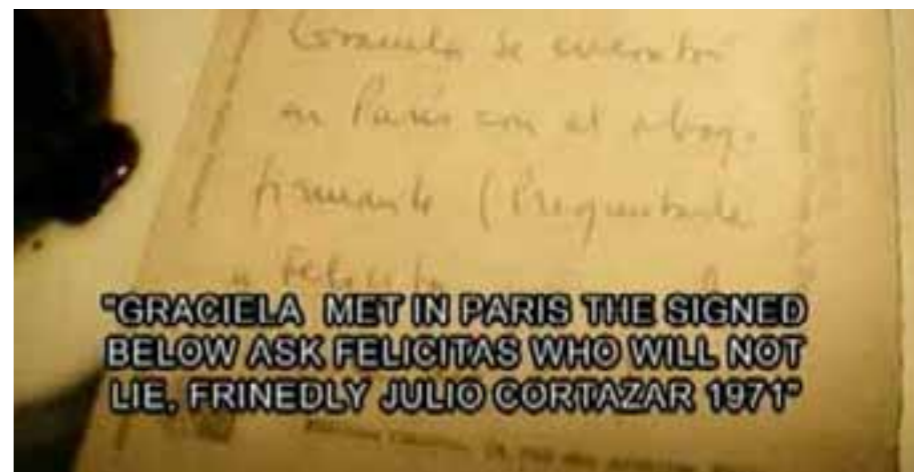 Graciela se encontró
en París con el abajo
firmante (Preguntarle
a Felicitas
"GRACIELA MET IN PARIS THE SIGNED
BELOW ASK FELICITAS WHO WILL NOT
LIE, FRINEDLY JULIO CORTAZAR 1971"